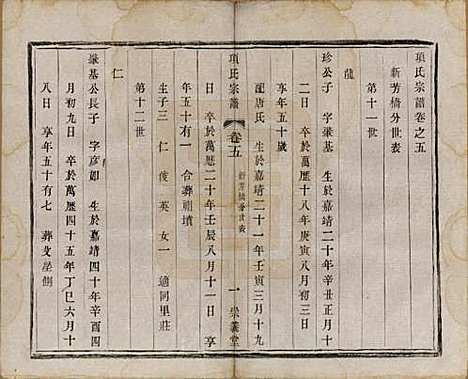 項氏宗譜卷之五
新芳橋分世表
第十一世
龍
珍公子 字肇基 生於嘉靖二十年辛丑正月十
二日 卒於萬曆十八年庚寅八月初三日
享年五十歲
配唐氏 生於嘉靖二十一年壬寅三月十九
項氏宗譜
卷五
新芳橋分世表
一
崇義堂
日 卒於萬曆二十年壬辰八月十一日 享
年五十有一 合葬祖墳
生子三 仁 俊 英 女一 適同里莊
第十二世
仁
肇基公長子 字彥如 生於嘉靖四十年辛酉四
月初九日 卒於萬曆四十五年丁巳六月十
八日 享年五十有七 葬父塋側